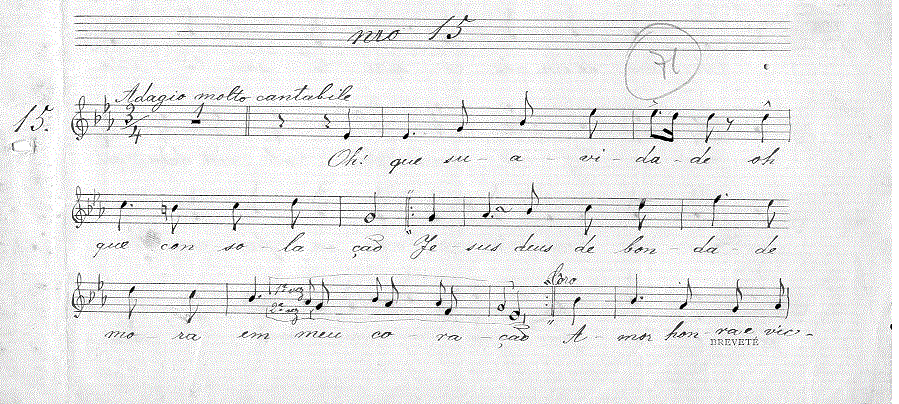 nro 15
71
Adagio molto cantabile
15. 3/4 1
Oh! que su-a-vi-da-de oh
que con so-la-ção Je-sus deus de bon-da-de
1ª vez Coro
2ª vez
mo ra em meu co ra-ção A-mor hon-ra e vic-
BREVETÉ